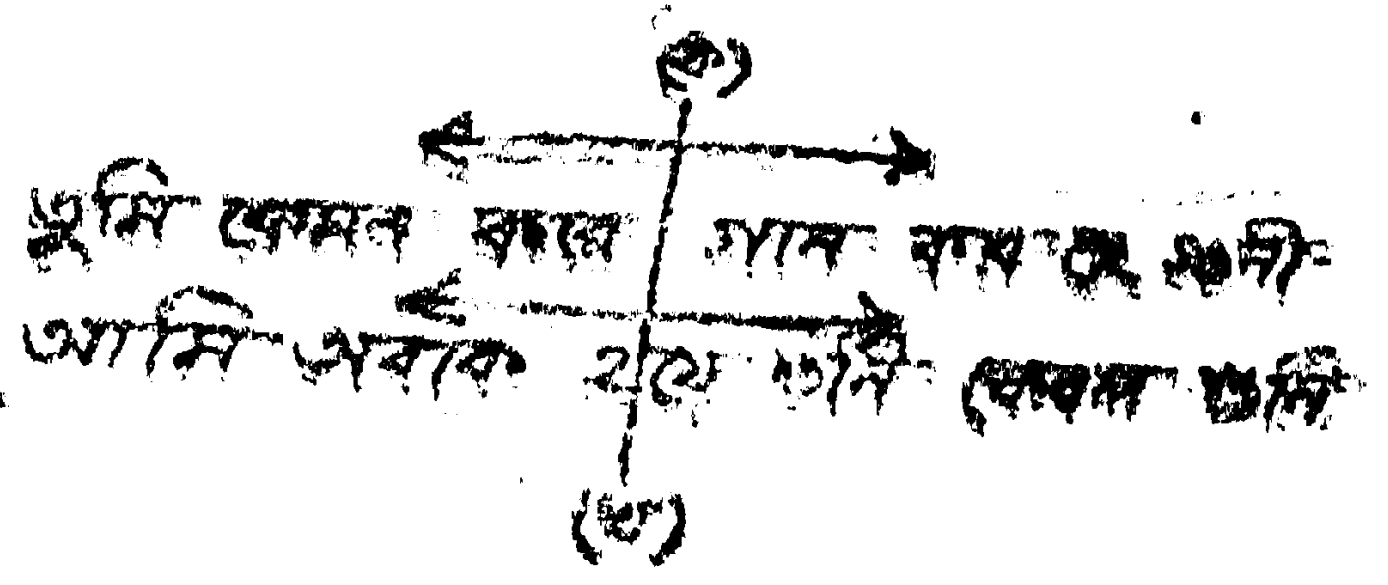 তুমি কেমন করে গান কর হে গুণী
আমি অবাক হয়ে শুনি কেবল শুনি